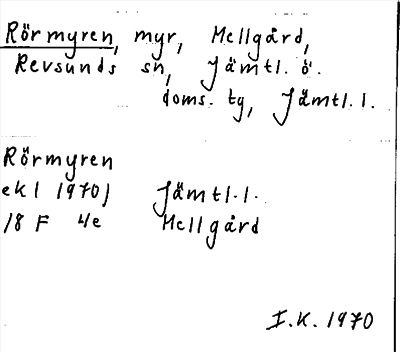 Rörmyren, myr, Mellgård,
Revsunds sn, Jämtl. ö.
doms. tg, Jämtl. l.
Rörmyren
ekl 1970) Jämtl. l.
18 F 4e Mellgård
I.K. 1970